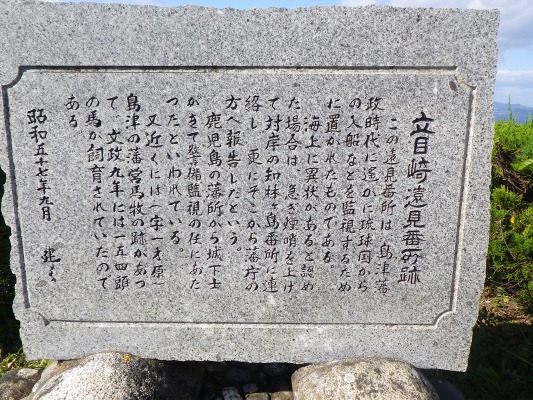 立目崎遠見番所跡
この遠見番所は、島津藩
政時代に遙かに琉球国から
の入船などを監視するため
に置かれたものである。
海上に異状があると認め
た場合は、急ぎ煙硝を上げ
て対岸の知林ヶ島番所に連
絡し 更にそこから藩庁の
方へ報告したという。
鹿児島の藩所から城下士
がきて警備監視の任にあた
ったといわれている。
又近くには(字一才原)
島津の藩営馬牧の跡があっ
て、文政九年には一五四頭
の馬が飼育されていたので
ある
昭和五十七年九月